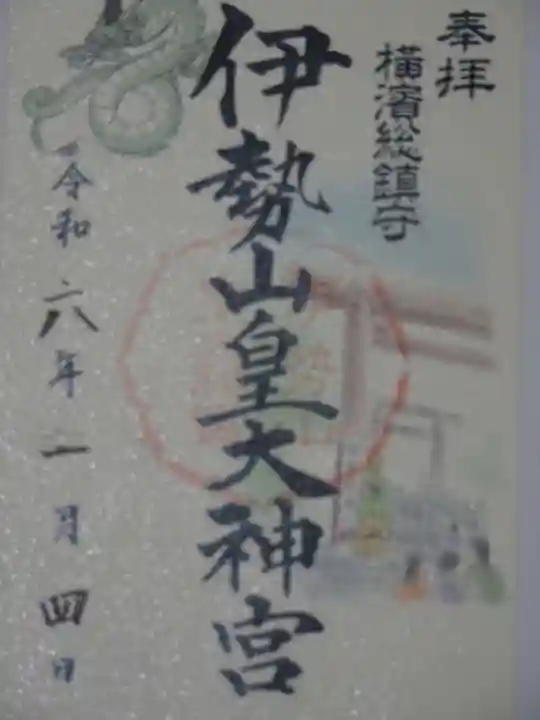 奉拝
橫濱総鎮守
伊勢山皇大神宮
令和六年一月四日